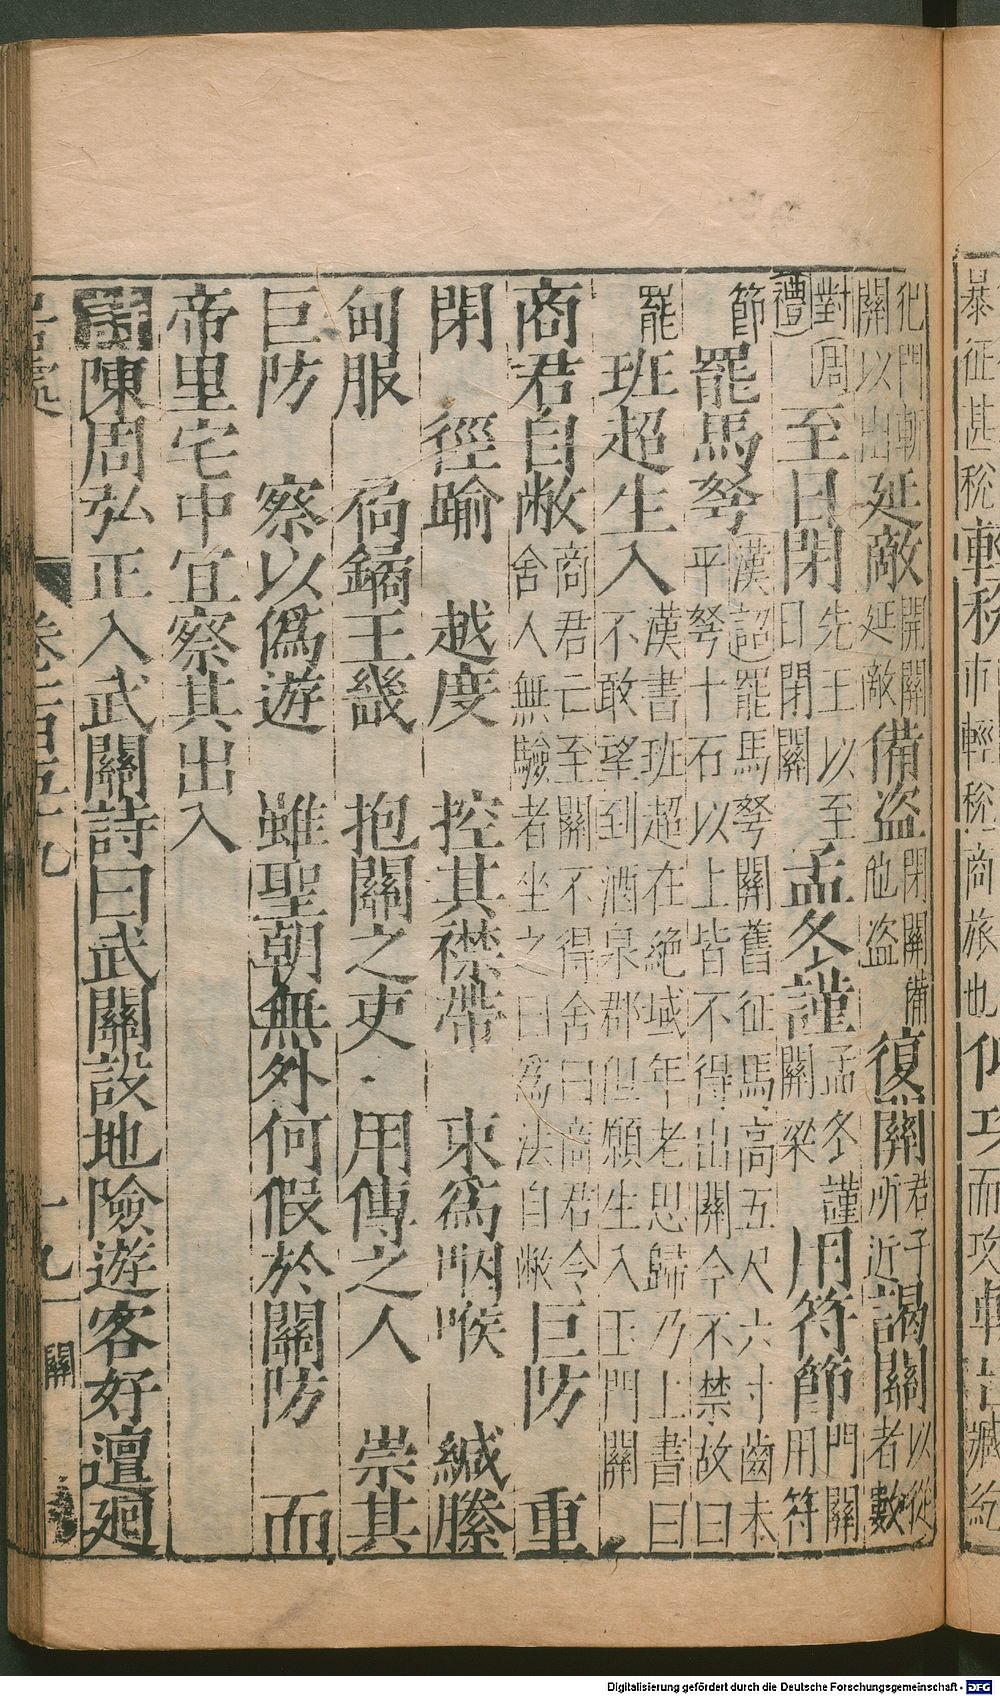 暴征甚稅輕稅市輕稅商旅也
犯門斬關以出延敵開關延敵備盜閉關備他盜復關君子所近謁關以從者數
對周禮至日閉先王以至日閉關孟冬謹孟冬謹關梁用符節門關用符
節罷馬弩漢詔罷馬弩關舊征馬高五尺六寸齒未平弩十石以上皆不得出關今不禁故曰
罷班超生入漢書班超在絕域年老思歸乃上書曰不敢望到酒泉郡但願生入玉門關
商君自敝商君亡至關不得舍曰商君令舍人無驗者坐之曰爲法自敝 巨防 重
閉 徑踰 越度 控其襟帶 束爲咽喉 緘縢
甸服 扃鐍王畿 抱關之吏 用傳之人 崇其
巨防 察以僞遊 雖聖朝無外何假於關防 而
帝里宅中宜察其出入
詩陳周弘正入武關詩曰武關設地險遊客好邅廻
居處 一九 關
Digitalisierung gefördert durch die Deutsche Forschungsgemeinschaft - DFG